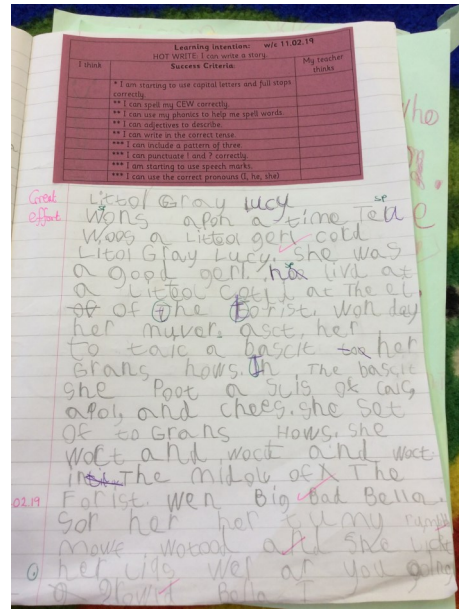 Learning intention: w/c 11.02.19
HOT WRITE: I can write a story.
I think Success Criteria: My teacher thinks
* I am starting to use capital letters and full stops correctly.
** I can spell my CEW correctly.
** I can use my phonics to help me spell words.
** I can adjectives to describe.
** I can write in the correct tense.
*** I can include a pattern of three
*** I can punctuate ! and ? correctly.
*** I am starting to use speech marks.
*** I can use the correct pronouns (I, he, she)
Great effort
Littol Gray Lucy
sp sp
Wons apon a time
Woos a Littol gerl cold
Litol Gray Lucy. she was
a good gerl. livd at
a Littol at The
of of The Forist. Won day
her muver. asct, her
to taic a bascit her
Grans hows. In The bascit
she Poot a
apol, and chees. she Set
Of to Grans Hows. she
woct and woct and woct.
in The Midol of The
02.19
Forist. wen Big Bad Bella.
Sor her her tumy
and She
her you going
Bella I